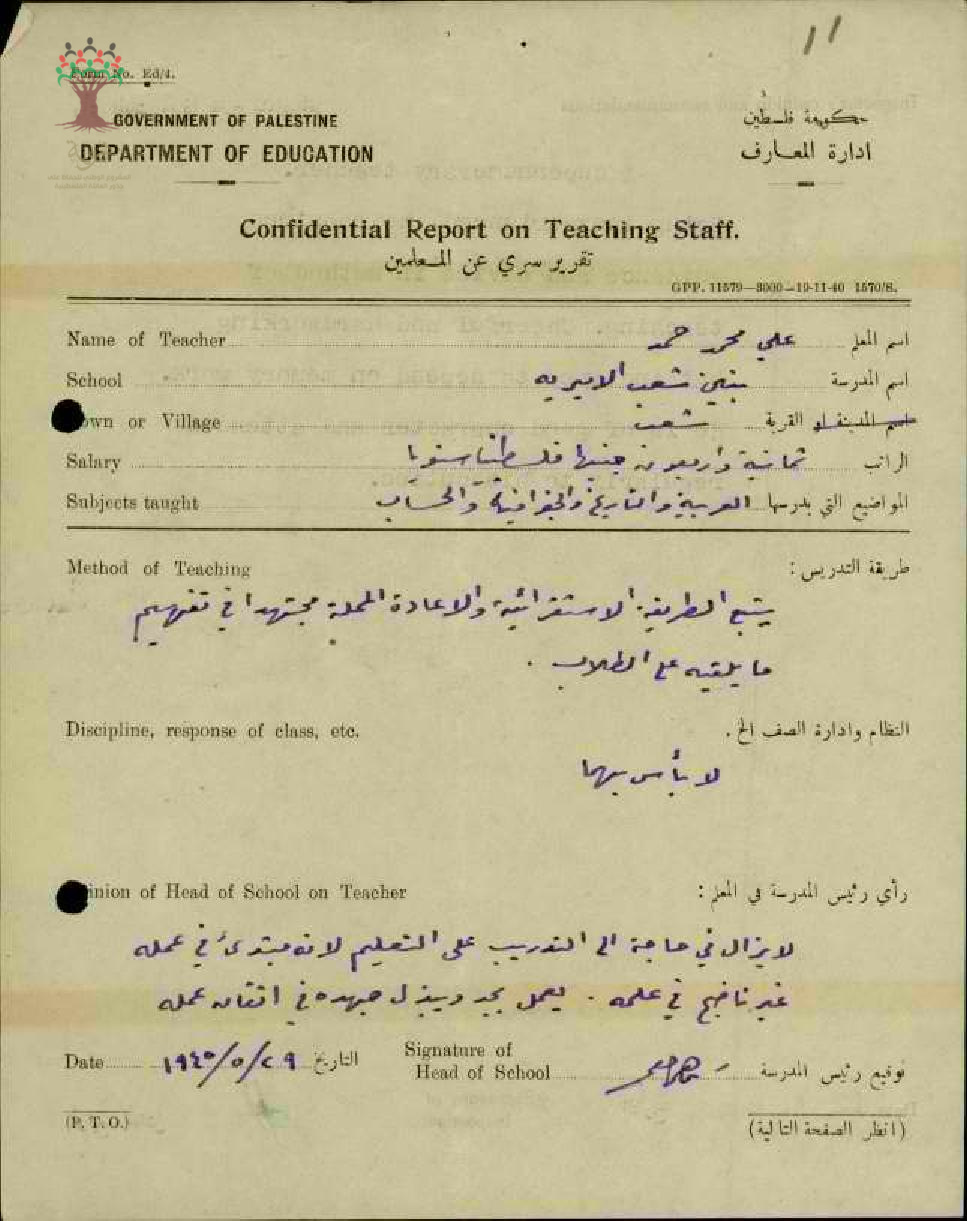 11
Form No. Ed/4.
GOVERNMENT OF PALESTINE
DEPARTMENT OF EDUCATION
حكومة فلسطين
ادارة المعارف
Confidential Report on Teaching Staff.
تقرير سري عن المعلمين
GPP. 11579—3000—19-11-40 1570/S.
Name of Teacher علي محمد حمد اسم المعلم
School بنين شعب الاميريه اسم المدرسة
Town or Village شعب القرية
Salary ثمانية واربعون جنيها فلسطينيا سنويا الراتب
Subjects taught العربية والتاريخ والجغرافية والحساب المواضيع التي يدرسها
Method of Teaching طريقة التدريس :
يتبع الطريقة الاستقرائية والاعادة المملة مجتهدا في تفهيم
ما يلقيه على الطلاب .
Discipline, response of class, etc. النظام وادارة الصف الخ .
لا بأس بهما
inion of Head of School on Teacher رأي رئيس المدرسة في المعلم :
لا يزال في حاجة الى التدريب على التعليم لانه مبتدئ في عمله
غير ناضج في علمه . يعمل بجد ويبذل جهده في اتقان عمله
Date ١٩٤٥/٥/٢٩ التاريخ Signature of Head of School توقيع رئيس المدرسة
(P. T. O.) (انظر الصفحة التالية)